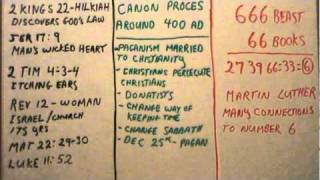 2 KINGS 22-HILKIAH
DISCOVERS GOD'S LAW
JER 17:9
MAN'S WICKED HEART
2 TIM 4:3-4
ITCHING EARS
REV 12 - WOMAN
ISRAEL/CHURCH
175 YRS
MAT 22:29-30
LUKE 11:52
CANON PROCES
AROUND 400 AD
-PAGANISM MARRIED
TO CHSTIANITY
- CHRISTIANS PERSECUTE
CHRISTIANS
- DONATISTS
- CHANGE WAY OF
KEEPING TIME
- CHANGE SABBATH
- DEC 25TH - PAGAN
666 BEAST
66 BOOKS
27 39 66:33=6
MARTIN LUTHER
MANY CONNECTIONS
TO NUMBER 6